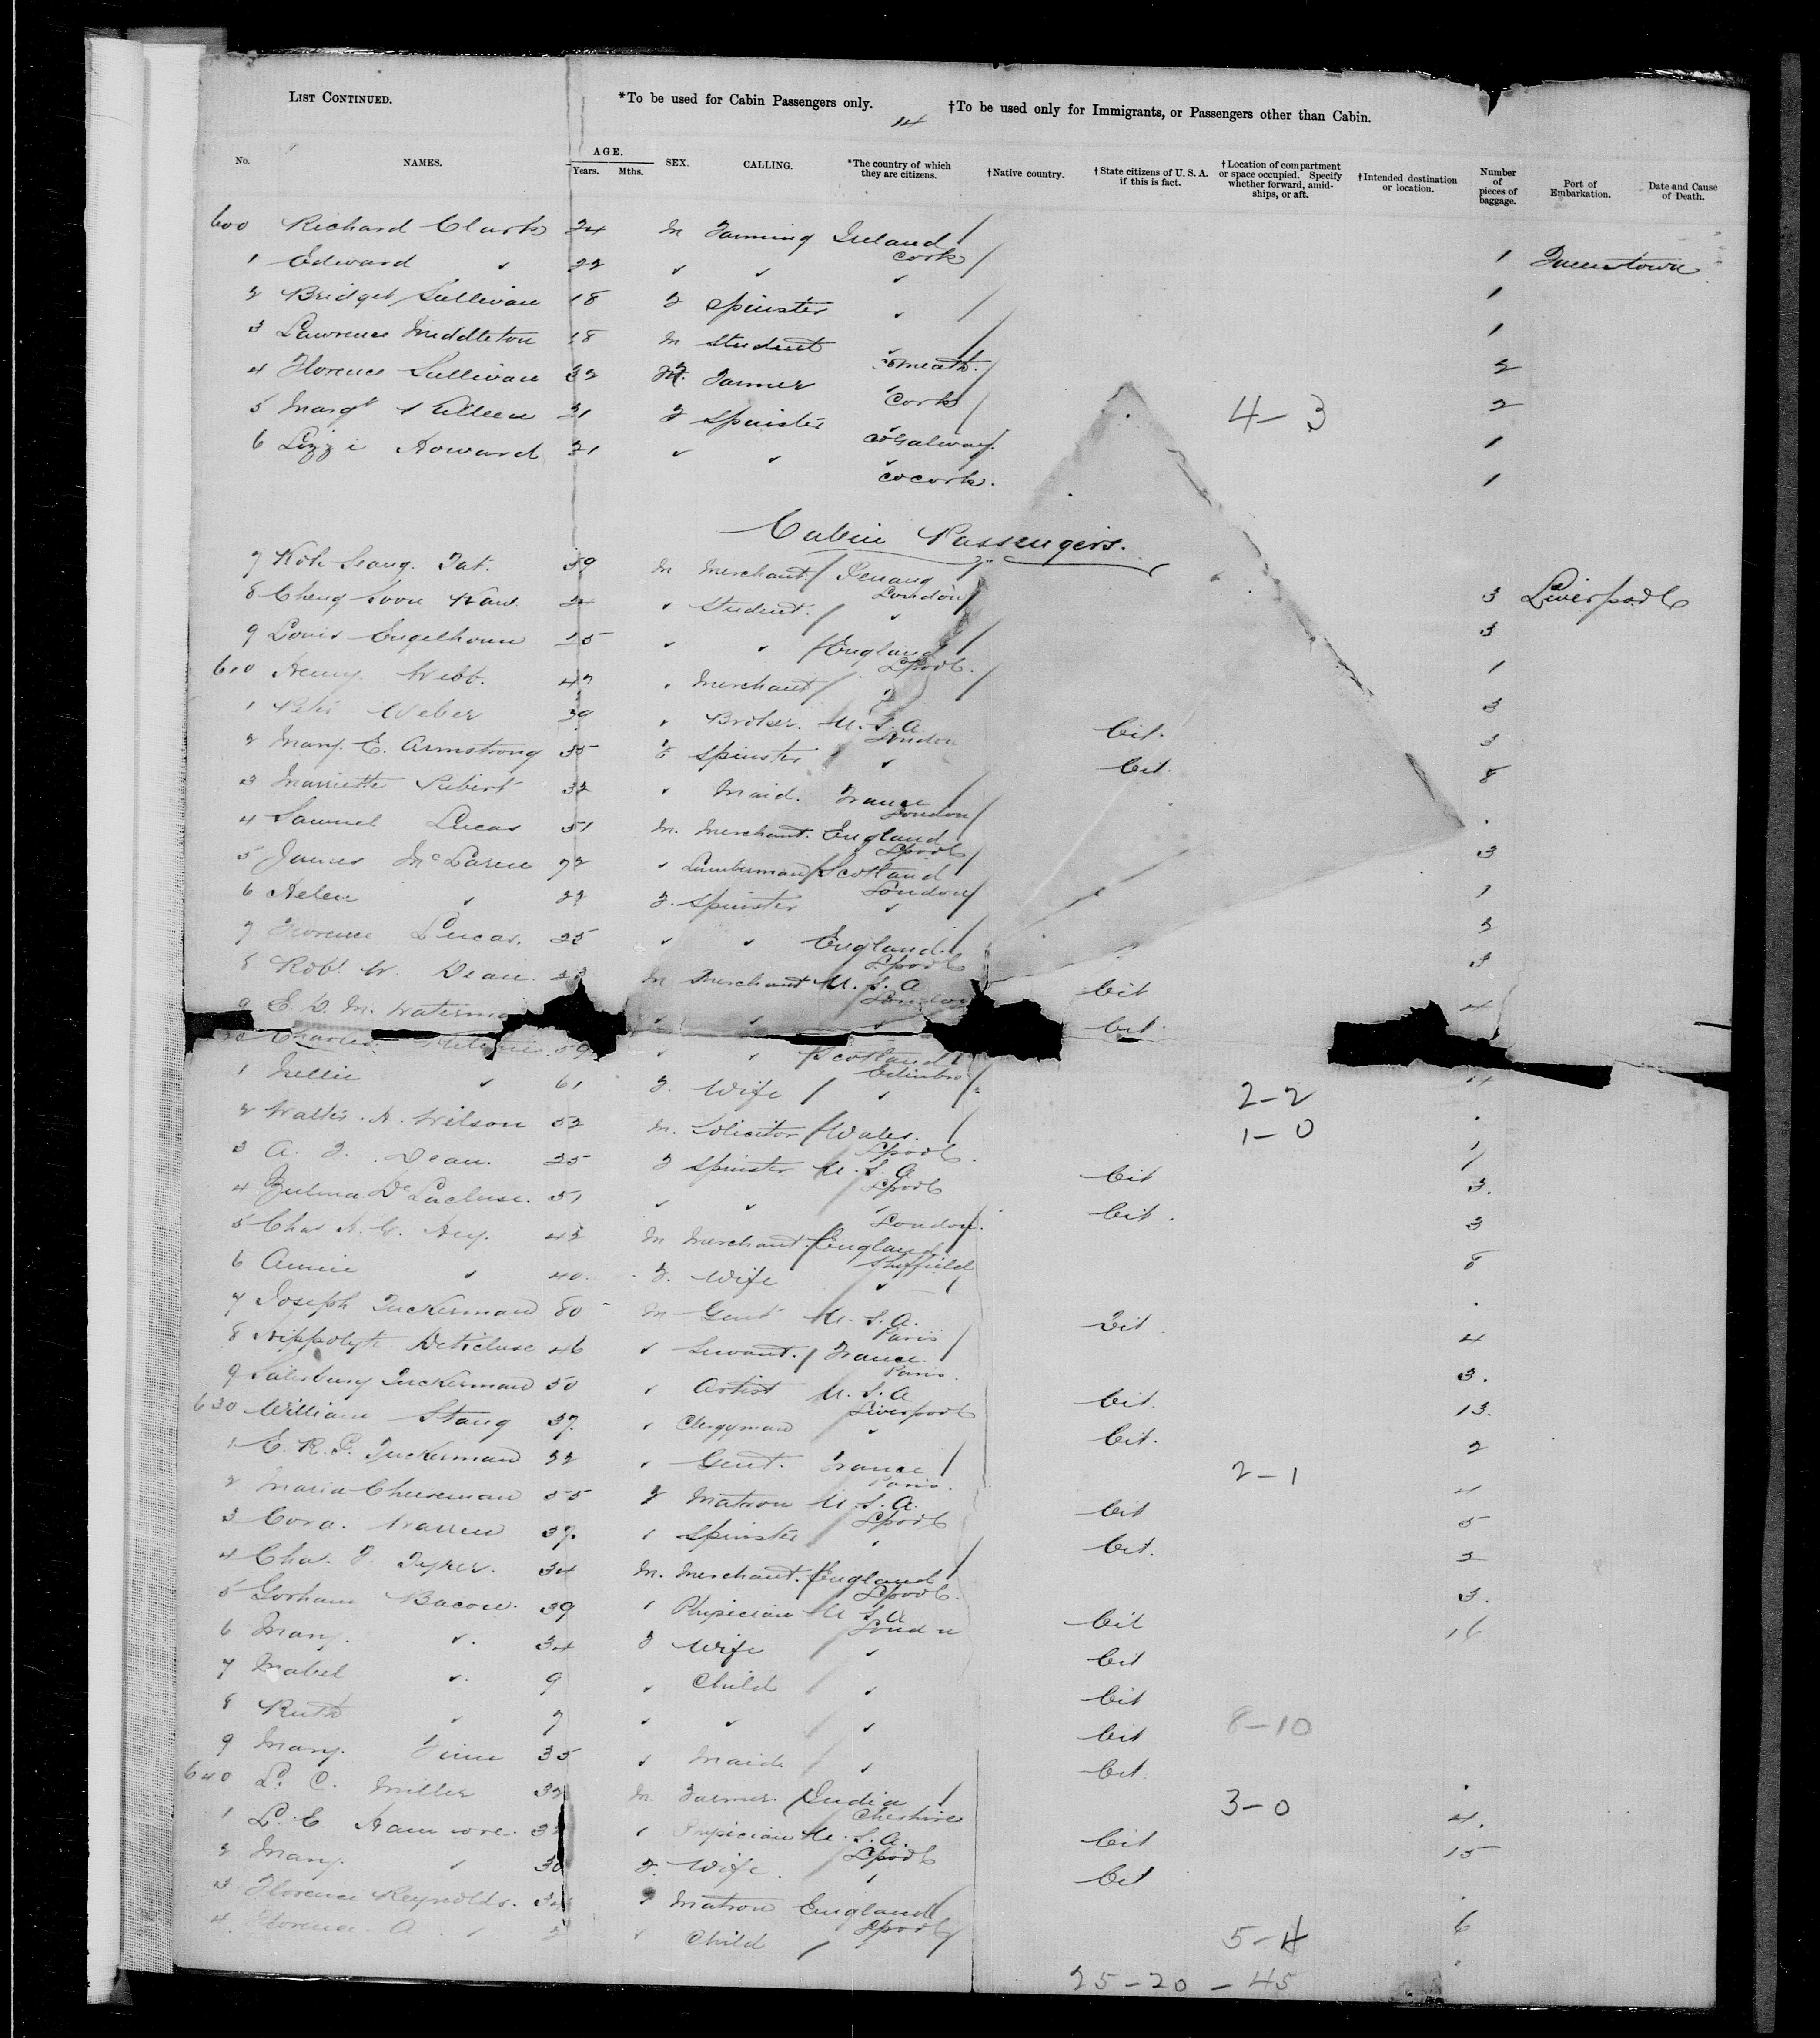 LIST CONTINUED. *To be used for Cabin Passengers only. †To be used only for Immigrants, or Passengers other than Cabin.
14
No. NAMES. AGE. Years. Mths. SEX. CALLING. *The country of which they are citizens. †Native country. †State citizens of U. S. A. if this is fact. †Location of compartment or space occupied. Specify whether forward, amidships, or aft. †Intended destination or location. Number of pieces of baggage. Port of Embarkation. Date and Cause of Death.
600 Richard Clark 24 M Farming Ireland Cork / 1 Queenstown
1 Edward " 22 " " " / 1
2 Bridget Sullivan 18 F Spinster " / 1
3 Lawrence Middleton 18 M Student Co Meath. / 2
4 Florence Sullivan 32 Farmer Cork / 2
5 Margt Killeen 21 F Spinster Co Galway. 1
4-3
6 Lizzie Howard 21 " " Co Cork. 1
Cabin Passengers.
7 Koh Seang Tat. 39 M Merchant / Penang London / 3 Liverpool
8 Cheng Soon 24 " Student. / " 3
9 Louis Engelhorn 25 " " / England Lpool. / 1
610 Henry Webb. 42 " Merchant / " / 3
1 Peter Weber 39 " Broker. U.S.A. London Cit. 3
2 Mary E. Armstrong 35 F Spinster / " Cit. 8
3 Marriette 32 " Maid. France London /
4 Samuel Lucas 51 M. Merchant. England Lpool / 3
5 James McLaren 72 " Lumberman / Scotland London / 1
6 Helen " 22 F. Spinster " 2
7 Florence Lucas. 25 " " England. Lpool / 3
8 Robt. W. Dean. M Merchant U.S.A London Cit 4
9 E. D. M. " " " Cit.
Charles 59 " " Scotland Edinbro / 4
1 Nellie " 61 F. Wife / " /
2-2
2 Walter A. Wilson 52 M. Solicitor / Wales. Lpool. / 1
1-0
3 A. F. Dean. 25 F Spinster U.S.A Lpool Cit 3.
4 Zulma De 51 " " " London. Cit. 3
5 Chas 42 M Merchant. / England Sheffield 8
6 Annie " 40. F. Wife " /
7 Joseph Tuckerman 80 M Gent U.S.A. Paris Cit 4
8 Hippolyte 46 " Servant. / France. Paris. / 3.
9 Salisbury Tuckerman 50 " Artist U.S.A Liverpool Cit. 13.
630 William Stang 37. " Clergyman " Cit. 2
1 E. R. G. Tuckerman 32 " Gent. France Paris. / 4
2-1
2 Maria Cheeseman 55 F Matron U.S.A. Lpool Cit 5
3 Cora. Warren 37. " Spinster / " Cit. 2
4 Chas. F. Tyrer. 34 M. Merchant. / England Lpool. / 3.
5 Gorham Bacon. 39 " Physician U.S.A London Cit 16
6 Mary. " 34 F Wife / " Cit
7 Mabel " 9 " Child / " Cit
8 Ruth " 7 " " / " Cit
8-10
9 Mary. 35 " Maid / " Cit
640 L. C. Miller 32 M. Farmer. / India Cheshire / 4.
3-0
1 L. E. 32 " Physician U.S.A. Lpool Cit 15
2 Mary. " 30 F. Wife. / " Cit
3 Florence Reynolds. " Matron England Lpool / 6
4 Florence A. " " Child / "
5-4
25-20-45